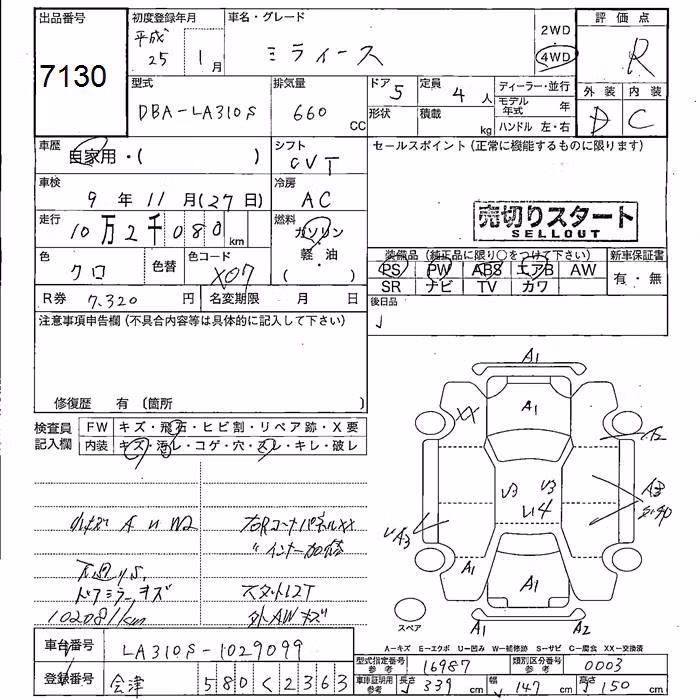 出品番号
7130
初度登録年月
平成 25 年 1 月
車名・グレード
ミライース
2WD
4WD
評価点
R
外装 内装
D C
型式
DBA-LA310S
排気量
660 CC
ドア 5
形状
定員 4 人
積載 kg
ディーラー・並行
モデル年式 年
ハンドル 左・右
車歴
自家用・( )
シフト
CVT
セールスポイント (正常に機能するものに限ります)
車検
9 年 11 月 (27 日)
冷房
AC
走行
10万2千080 km
燃料
ガソリン
軽・油
( )
売切りスタート
SELLOUT
色
クロ
色替
色コード
X07
装備品 (純正品に限り○をつけて下さい)
PS PW ABS エアB AW
SR ナビ TV カワ
新車保証書
有・無
R券 7,320 円
名変期限 月 日
後日品
注意事項申告欄 (不具合内容等は具体的に記入して下さい)
修復歴 有 (箇所
検査員記入欄
FW キズ・飛石・ヒビ割・リペア跡・X要
内装 キズ・汚レ・コゲ・穴・スレ・キレ・破レ
小キズ A U W2
右Rコーナパネル XX
〃インナー加修
ドアミラーキズ
スタットレスT
102081km
外AWキズ
A1
A1
XX
A2
U3 U3
U4
A3
UA3
A1
A1
A1 A2
スペア
A-キズ E-エクボ U-凹み W-補修跡 S-サビ C-腐食 XX-交換済
車台番号
LA310S-1029099
型式指定番号 参考 16987
類別区分番号 参考 0003
登録番号
会津 580 く 2363
車庫証明用 参考 長さ 339 cm 幅 147 cm 高さ 150 cm